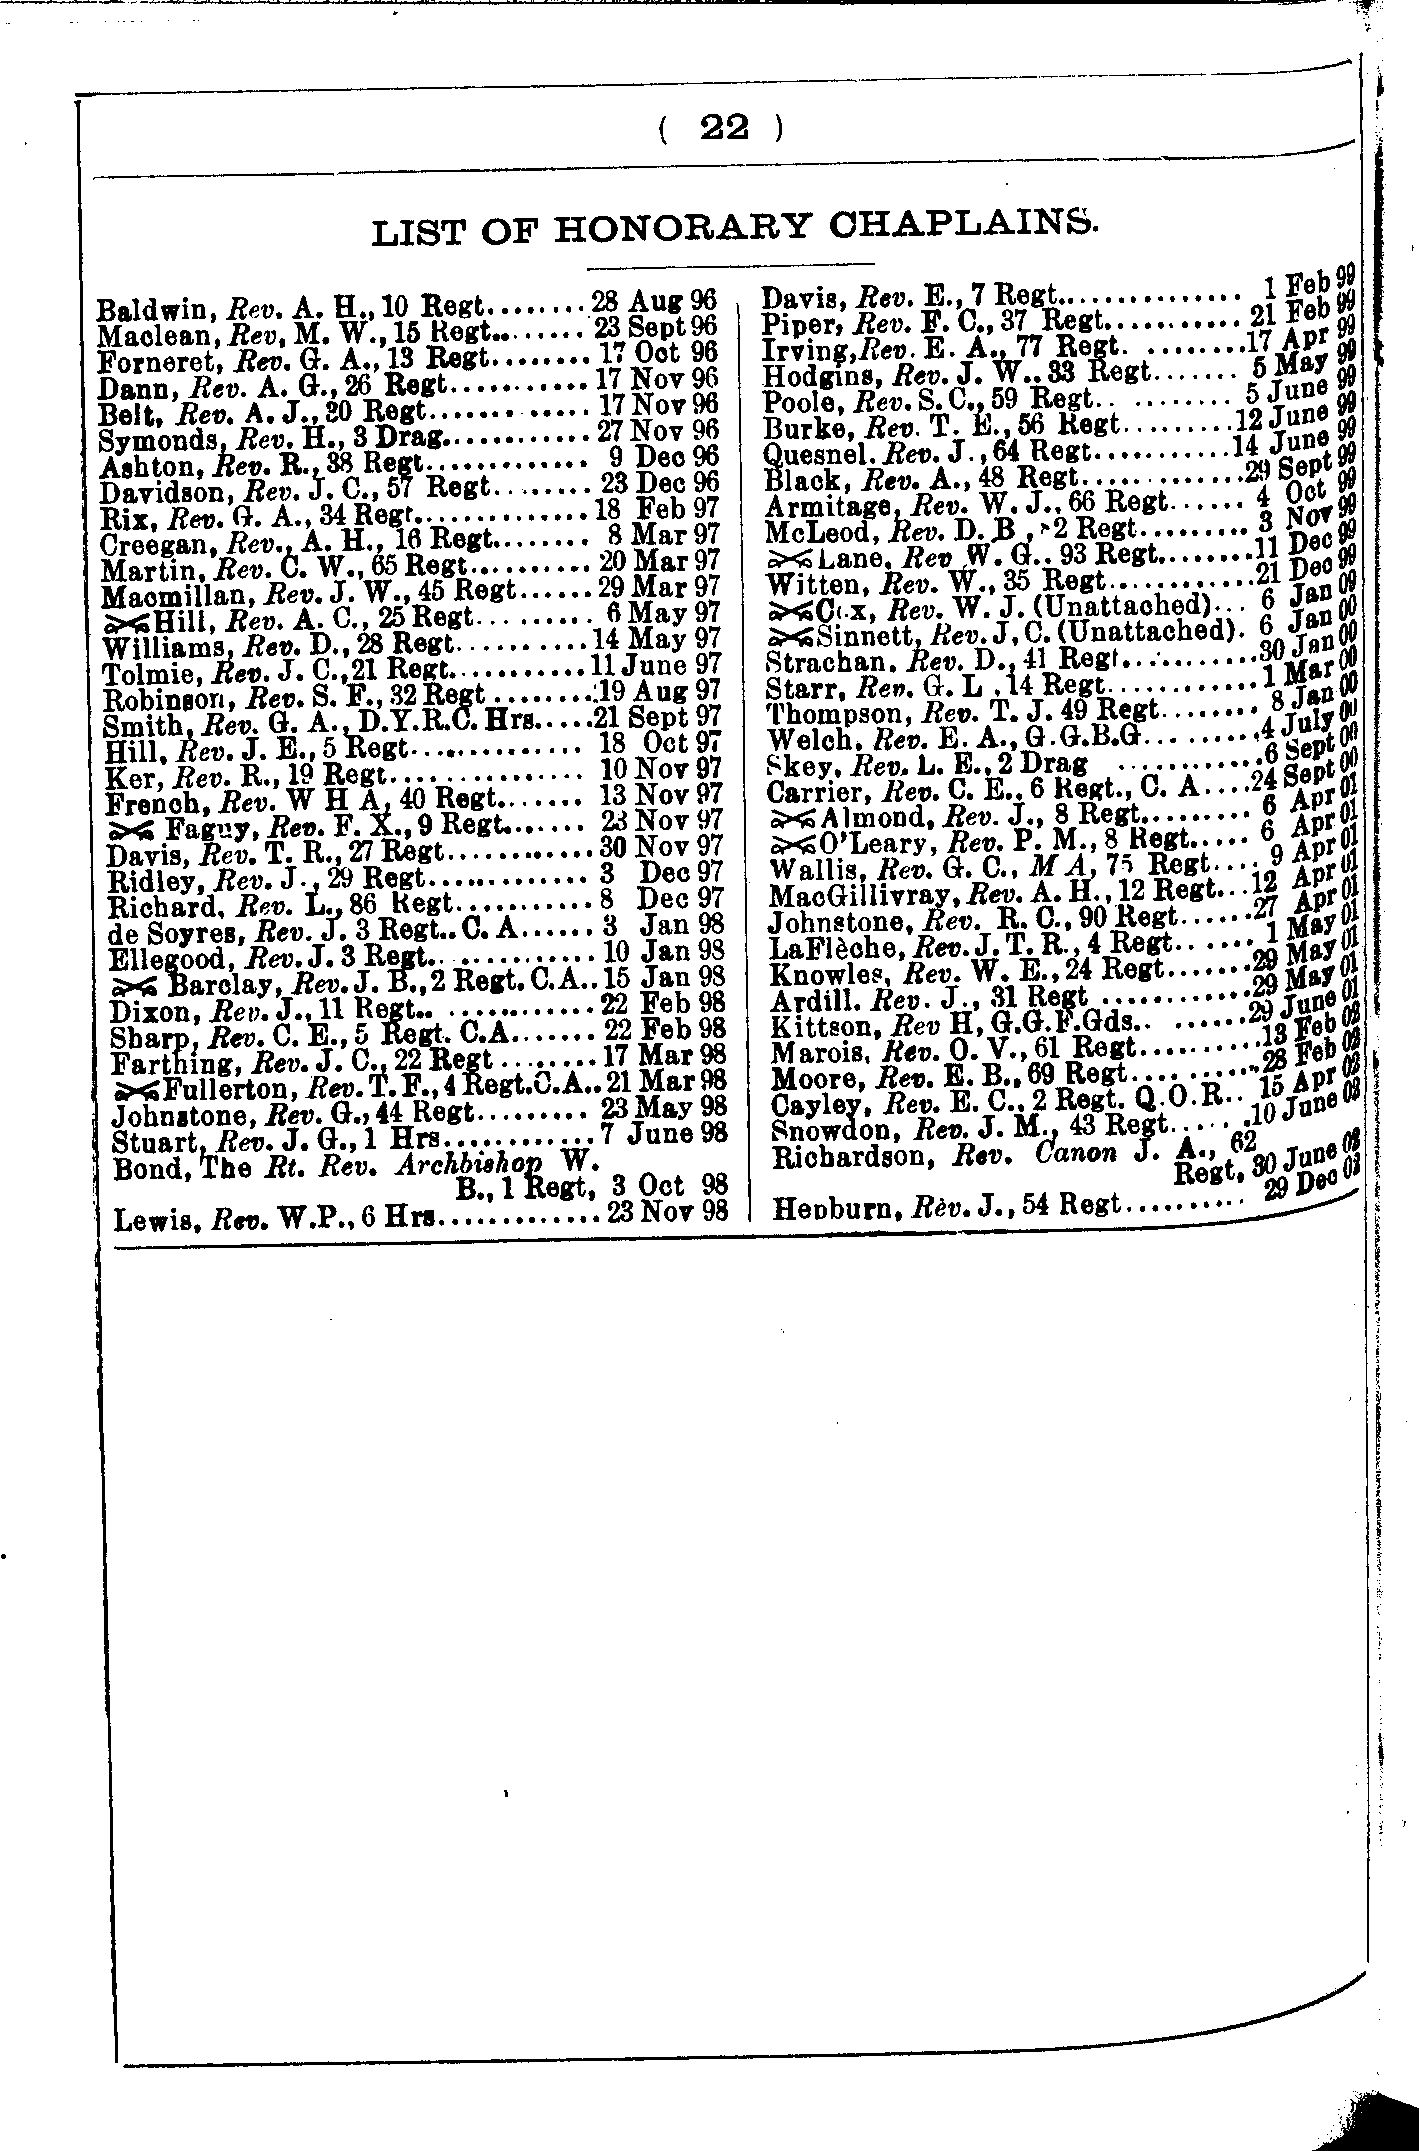 ( 22 )
LIST OF HONORARY CHAPLAINS.
Baldwin, Rev. A. H., 10 Regt........28 Aug 96
Maclean, Rev. M. W., 15 Regt........23 Sept 96
Forneret, Rev. G. A., 13 Regt........ 17 Oct 96
Dann, Rev. A. G., 26 Regt............17 Nov 96
Belt, Rev. A. J., 20 Regt............. 17 Nov 96
Symonds, Rev. H., 3 Drag............27 Nov 96
Ashton, Rev. R., 38 Regt............. 9 Dec 96
Davidson, Rev. J. C., 57 Regt........ 23 Dec 96
Rix, Rev. G. A., 34 Regt..............18 Feb 97
Creegan, Rev., A. H., 16 Regt........ 8 Mar 97
Martin, Rev. C. W., 65 Regt.......... 20 Mar 97
Macmillan, Rev. J. W., 45 Regt......29 Mar 97
Hill, Rev. A. C., 25 Regt.......... 6 May 97
Williams, Rev. D., 28 Regt...........14 May 97
Tolmie, Rev. J. C., 21 Regt...........11 June 97
Robinson, Rev. S. F., 32 Regt.........19 Aug 97
Smith, Rev. G. A., D.Y.R.C. Hrs.....21 Sept 97
Hill, Rev. J. E., 5 Regt............... 18 Oct 97
Ker, Rev. R., 19 Regt................ 10 Nov 97
French, Rev. W H A, 40 Regt....... 13 Nov 97
Faguy, Rev. F. X., 9 Regt....... 23 Nov 97
Davis, Rev. T. R., 27 Regt............30 Nov 97
Ridley, Rev. J., 29 Regt............. 3 Dec 97
Richard, Rev. L., 86 Regt...........8 Dec 97
de Soyres, Rev. J. 3 Regt.. C. A......3 Jan 98
Ellegood, Rev. J. 3 Regt.. ............10 Jan 98
Barclay, Rev. J. B., 2 Regt. C.A..15 Jan 98
Dixon, Rev. J., 11 Regt.. ............22 Feb 98
Sharp, Rev. C. E., 5 Regt. C.A.......22 Feb 98
Farthing, Rev. J. C., 22 Regt ........17 Mar 98
Fullerton, Rev. T. F., 4 Regt. C.A..21 Mar 98
Johnstone, Rev. G., 44 Regt......... 23 May 98
Stuart, Rev. J. G., 1 Hrs............7 June 98
Bond, The Rt. Rev. Archbishop W.
B., 1 Regt, 3 Oct 98
Lewis, Rev. W.P., 6 Hrs.............23 Nov 98
Davis, Rev. E., 7 Regt............... 1 Feb 99
Piper, Rev. F. C., 37 Regt........... 21 Feb 99
Irving, Rev. E. A., 77 Regt. ........17 Apr 99
Hodgins, Rev. J. W.. 33 Regt....... 5 May 99
Poole, Rev. S. C., 59 Regt.. ........ 5 June 99
Burke, Rev. T. E., 56 Regt.........12 June 99
Quesnel. Rev. J., 64 Regt...........14 June 99
Black, Rev. A., 48 Regt.............29 Sept 99
Armitage, Rev. W. J., 66 Regt...... 4 Oct 99
McLeod, Rev. D. B , 2 Regt......... 3 Nov 99
Lane, Rev W. G.. 93 Regt........11 Dec 99
Witten, Rev. W., 35 Regt............21 Dec 99
Cox, Rev. W. J. (Unattached)... 6 Jan 09
Sinnett, Rev. J, C. (Unattached). 6 Jan 00
Strachan, Rev. D., 41 Regt...........30 Jan 00
Starr, Rev. G. L , 14 Regt............1 Mar 00
Thompson, Rev. T. J. 49 Regt........ 8 Jan 00
Welch, Rev. E. A., G.G.B.G.........4 July 00
Skey, Rev. L. E., 2 Drag ............6 Sept 00
Carrier, Rev. C. E., 6 Regt., C. A....24 Sept 00
Almond, Rev. J., 8 Regt......... 6 Apr 01
O'Leary, Rev. P. M., 8 Regt..... 6 Apr 01
Wallis, Rev. G. C., M A, 75 Regt.... 9 Apr 01
MacGillivray, Rev. A. H., 12 Regt...12 Apr 01
Johnstone, Rev. R. C., 90 Regt......27 Apr 01
LaFlèche, Rev. J. T. R., 4 Regt....... 1 May 01
Knowles, Rev. W. E., 24 Regt.......29 May 01
Ardill. Rev. J., 31 Regt .............29 May 01
Kittson, Rev H, G.G.F.Gds.. ......29 June 01
Marois, Rev. O. V., 61 Regt..........13 Feb 02
Moore, Rev. E. B., 69 Regt..........28 Feb 02
Cayley, Rev. E. C., 2 Regt. Q.O.R.. 15 Apr 02
Snowdon, Rev. J. M., 43 Regt......10 June 02
Richardson, Rev. Canon J. A., 62
Regt, 30 June 02
Hepburn, Rev. J., 54 Regt.......... 29 Dec 02